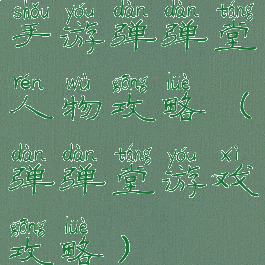 shǒu yóu dàn dàn táng
手游弹弹堂
rén wù gōng lüè
人物攻略(
dàn dàn táng yóu xì
弹弹堂游戏
gōng lüè
攻略)